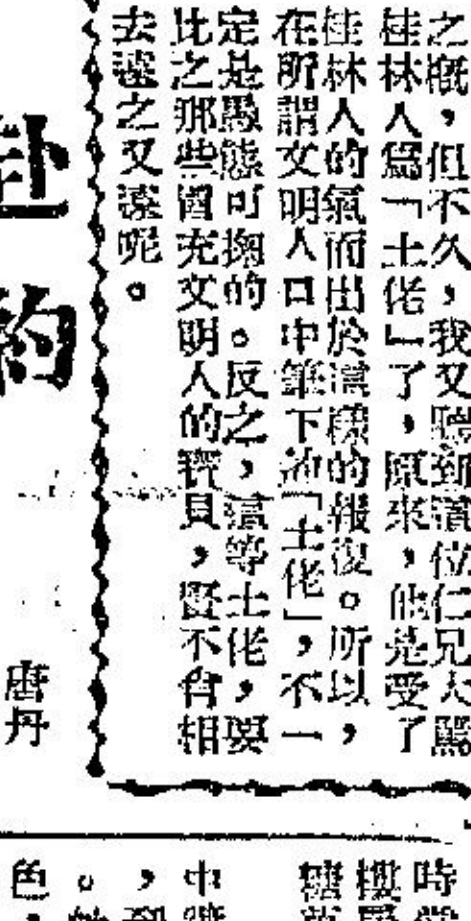 之概，但不久，我又聽到這位仁兄大罵
桂林人爲「土佬」了，原來，他是受了
桂林人的氣而出於這樣的報復。所以，
在所謂文明人口中筆下的「土佬」，不一
定是態可掬的。反之，這等土佬，要
比之那些冒充文明人的寶貝，賢不肖相
去遠之又遠呢。
赴約
唐丹
時
糖
中
，
。
色